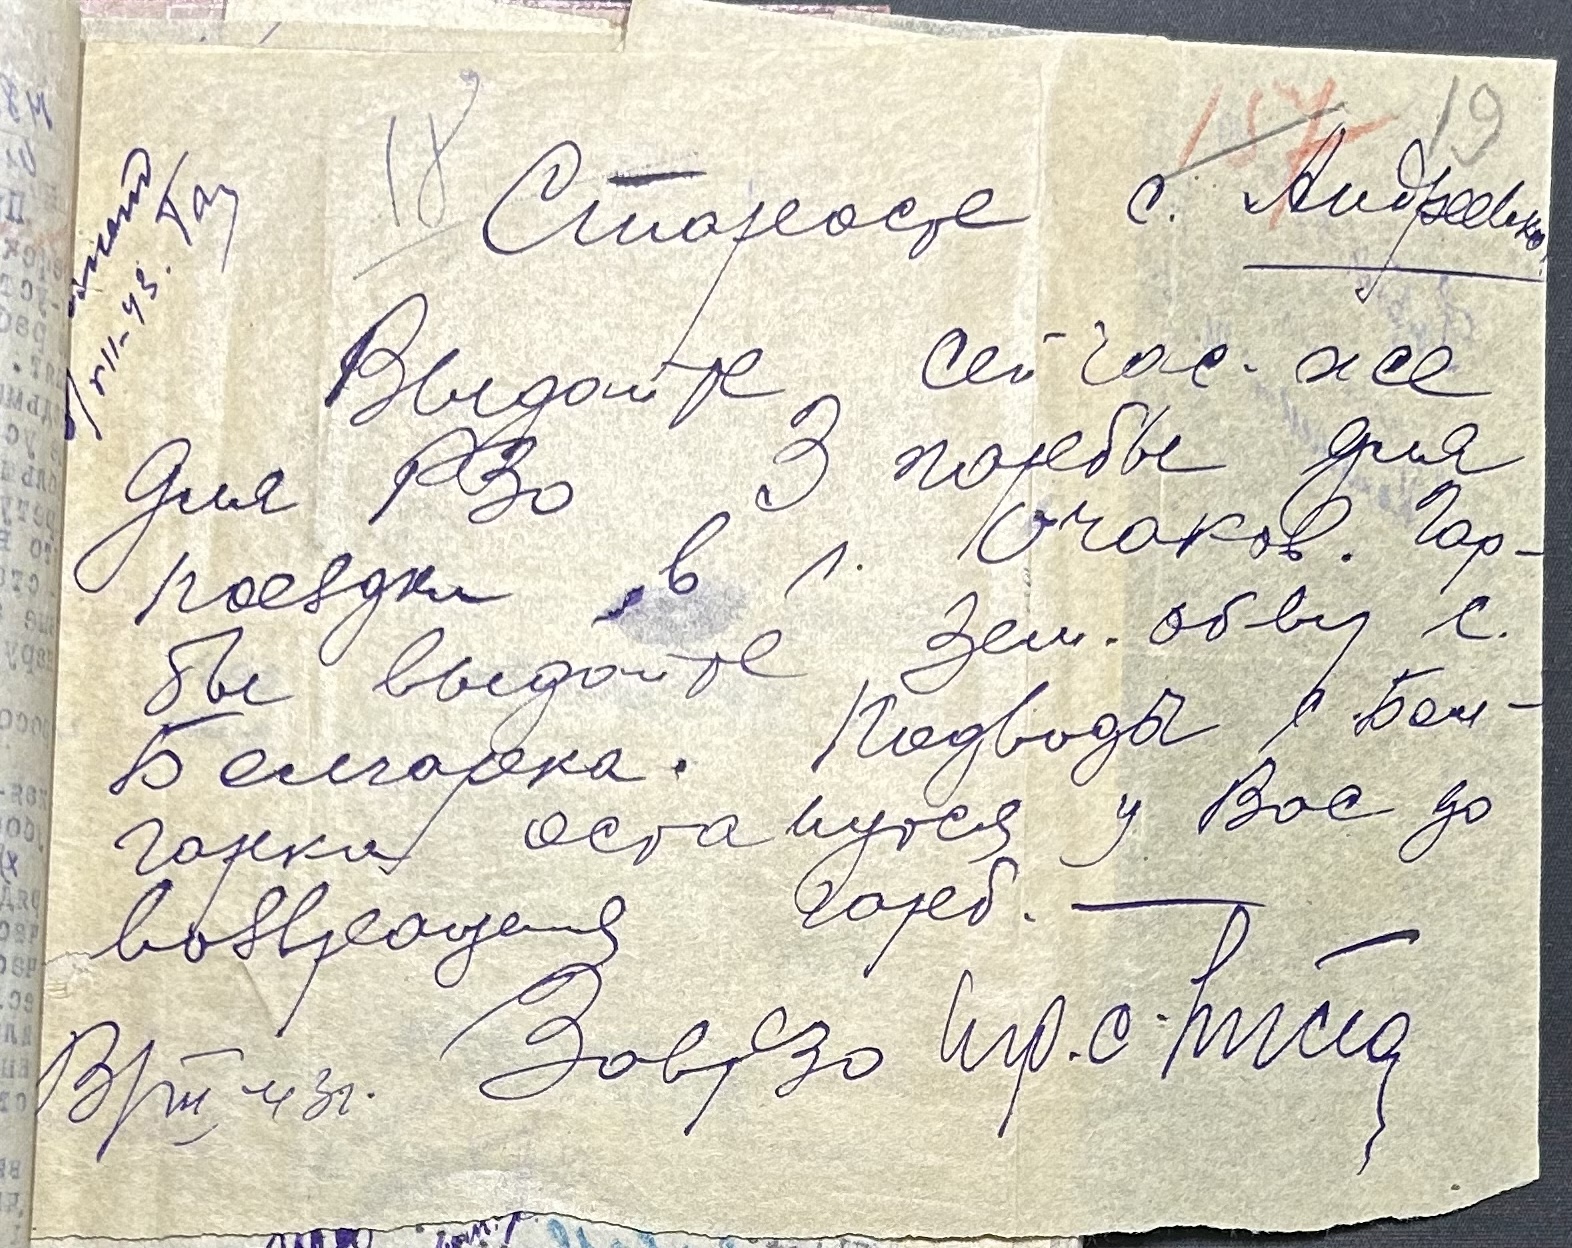 18
157 19
Старосте с. Андреевка
Выдайте сейчас-же
для РЗО 3 гарбы для
поездки в г. Очаков. Гар-
бы выдайте зем. обву с.
Болгарка. Подводы с. Бол-
гарка останутся у Вас до
возвращения гарб.
ЗавРЗО
VIII-43.
43г.